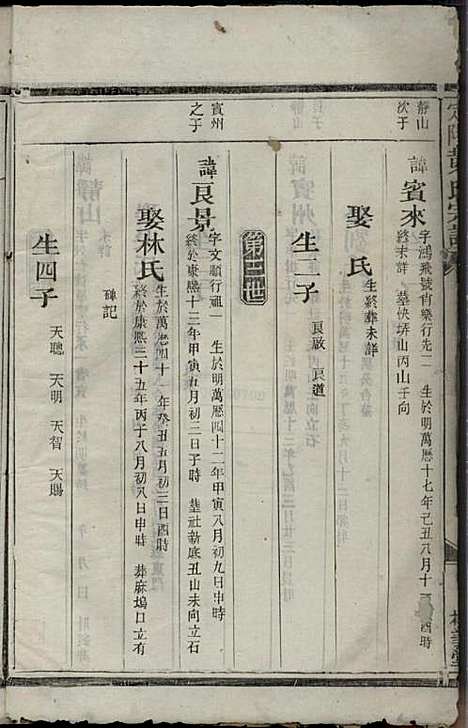 靜山
次子
諱賓來
字鴻飛號肖樂行先二 生於明萬曆十七年己丑八月十 酉時
終未詳 墓快塝山丙山壬向
娶 氏
生終葬未詳
生二子
良啟 良道
第二世
賓州
之子
諱良景
字文順行祖一 生於明萬曆四十二年甲寅八月初九日申時
終於康熙十三年甲寅五月初三日子時 墓社新底丑山未向立石
娶林氏
生於萬曆四十一年癸丑五月初三日酉時
終於康熙三十五年丙子八月初八日申時 葬麻塢口立有
碑記
生四子
天聰 天明 天智 天賜